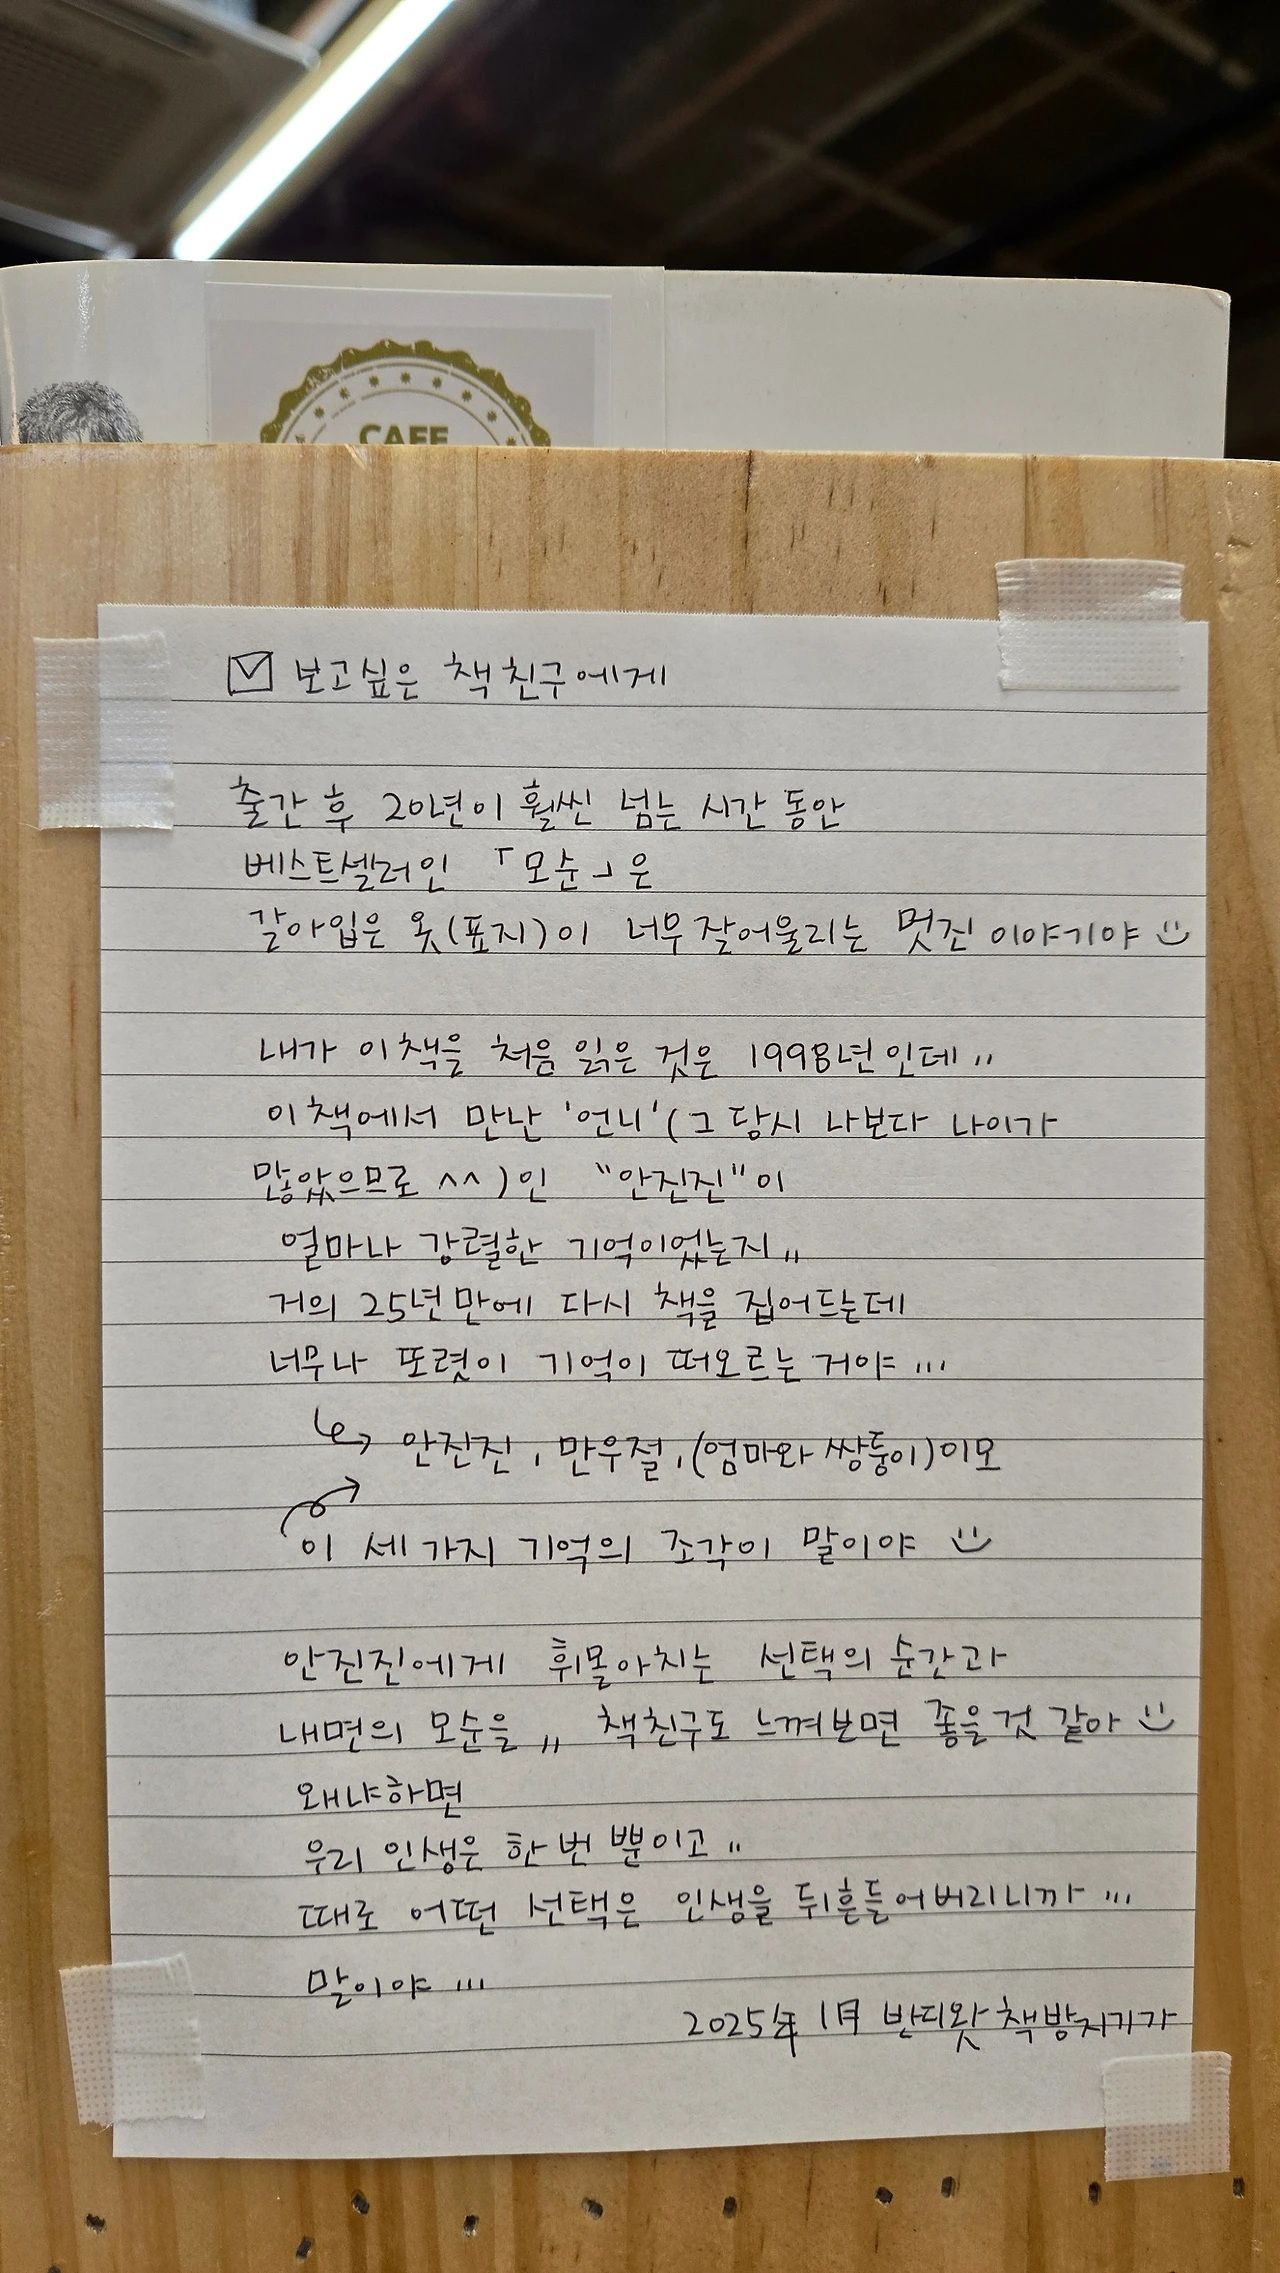 CAFE
☑ 보고싶은 책친구에게
출간 후 20년이 훨씬 넘는 시간 동안
베스트셀러인 「모순」은
갈아입은 옷(표지)이 너무 잘어울리는 멋진 이야기야 ☺
내가 이 책을 처음 읽은 것은 1998년인데,,
이 책에서 만난 '언니'(그 당시 나보다 나이가
많았으므로 ^^)인 "안진진"이
얼마나 강렬한 기억이었는지,,
거의 25년만에 다시 책을 집어드는데
너무나 또렷이 기억이 떠오르는거야...
↳ 안진진, 만우절, (엄마와 쌍둥이)이모
이 세가지 기억의 조각이 말이야 ☺
안진진에게 휘몰아치는 선택의 순간과
내면의 모순을,, 책친구도 느껴보면 좋을것 같아 ☺
왜냐하면
우리 인생은 한 번 뿐이고,,
때로 어떤 선택은 인생을 뒤흔들어버리니까...
말이야...
2025年 1月 반디왓 책방지기가